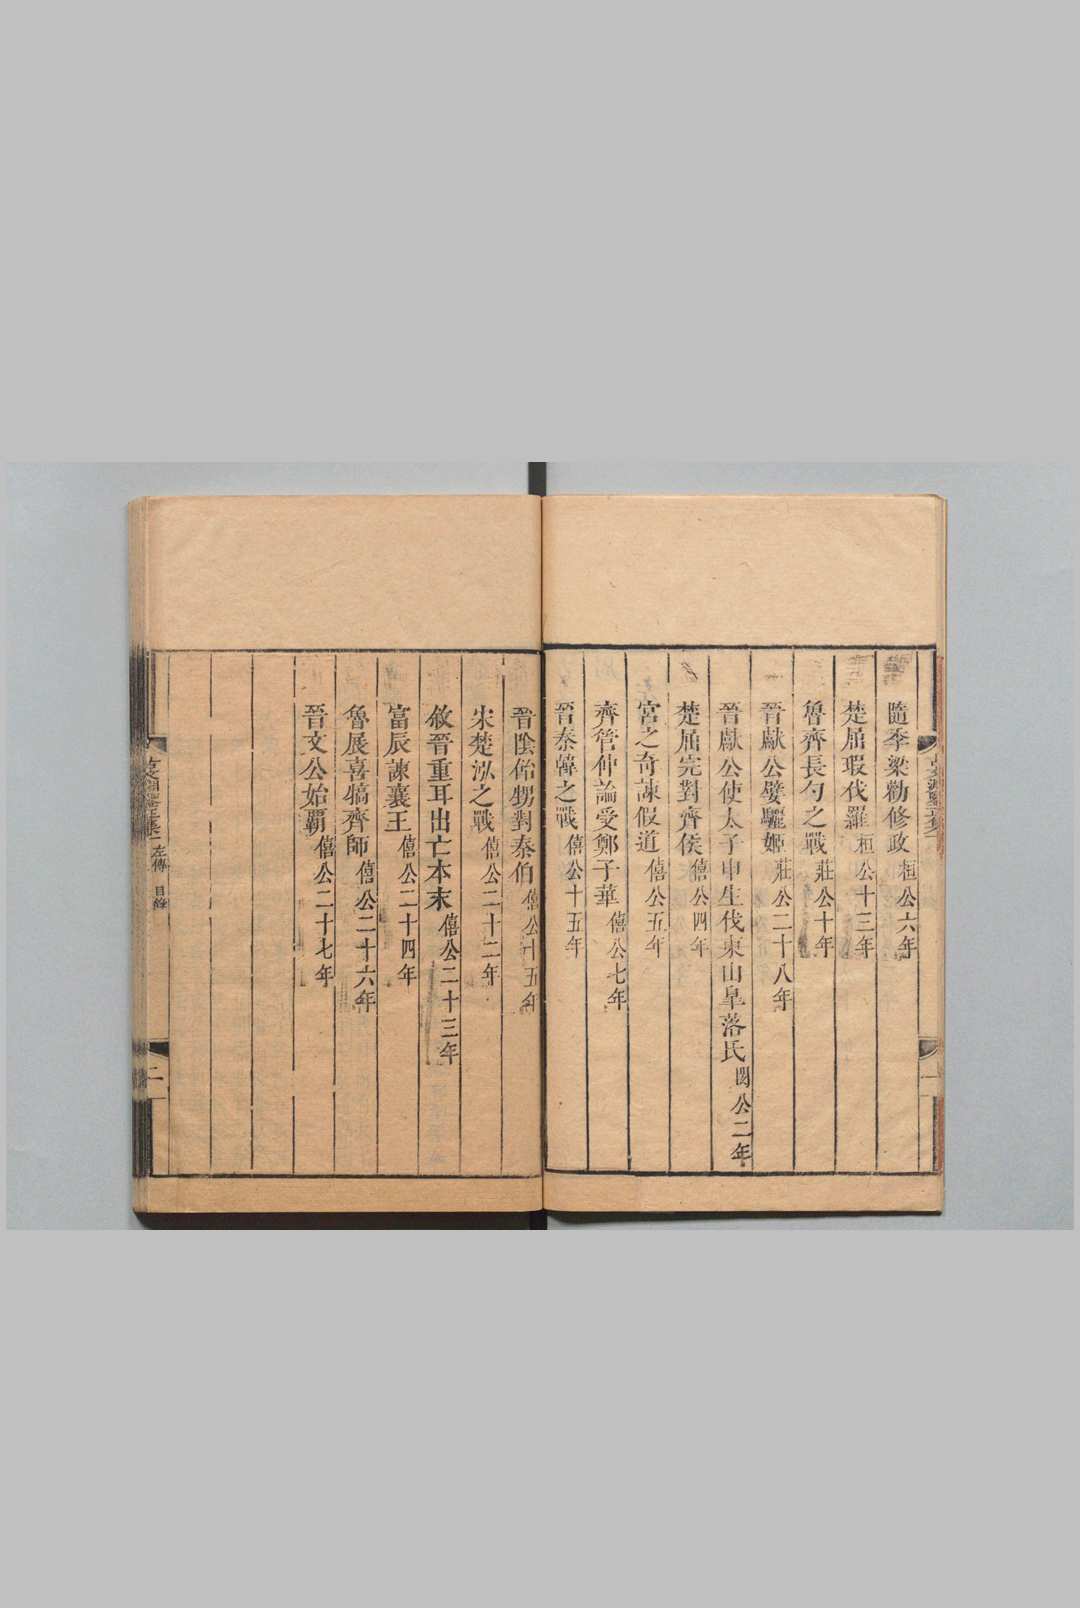 隨季梁勸修政 桓公六年
楚屈瑕伐羅 桓公十三年
魯齊長勺之戰 莊公十年
晉獻公嬖驪姬 莊公二十八年
晉獻公使太子申生伐東山皐落氏 閔公二年
楚屈完對齊侯 僖公四年
宮之奇諫假道 僖公五年
齊管仲論受鄭子華 僖公七年
晉秦韓之戰 僖公十五年
晉陰飴甥對秦伯 僖公十五年
宋楚泓之戰 僖公二十二年
敘晉重耳出亡本末 僖公二十三年
富辰諫襄王 僖公二十四年
魯展喜犒齊師 僖公二十六年
晉文公始霸 僖公二十七年
左傳 目錄
二